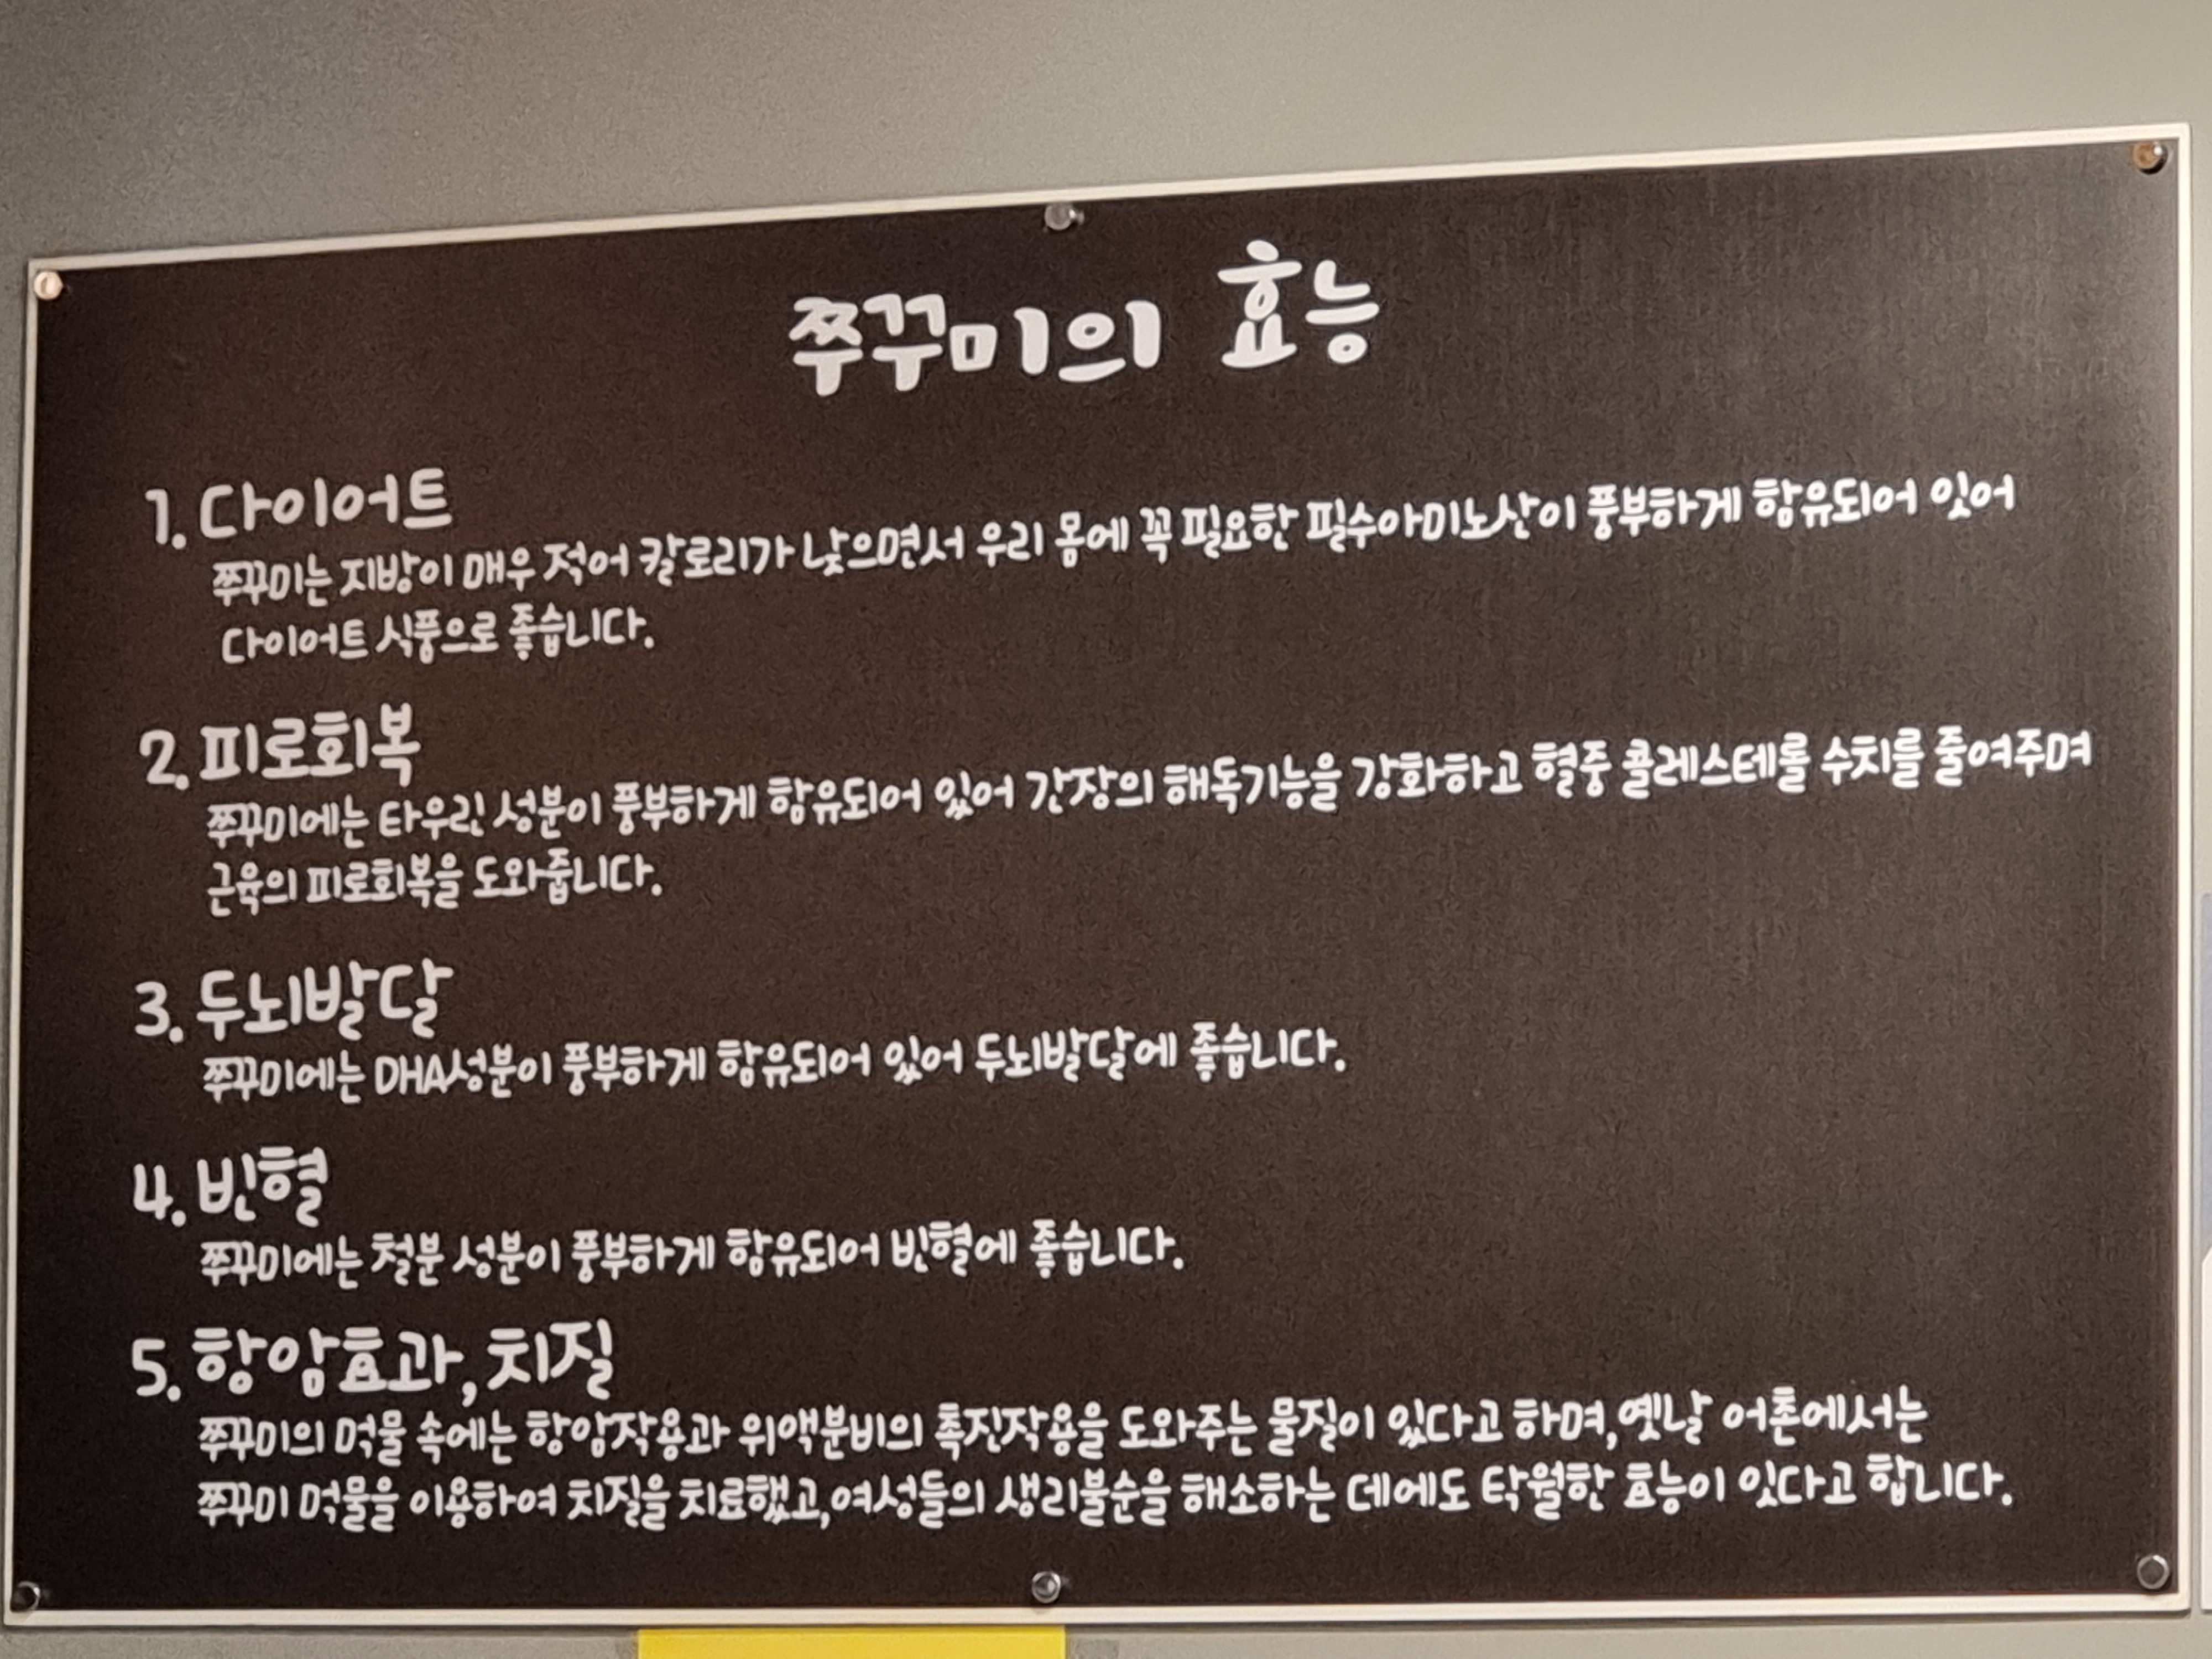 쭈꾸미의 효능
1. 다이어트
쭈꾸미는 지방이 매우 적어 칼로리가 낮으면서 우리 몸에 꼭 필요한 필수아미노산이 풍부하게 함유되어 있어
다이어트 식품으로 좋습니다.
2. 피로회복
쭈꾸미에는 타우린 성분이 풍부하게 함유되어 있어 간장의 해독기능을 강화하고 혈중 콜레스테롤 수치를 줄여주며
근육의 피로회복을 도와줍니다.
3. 두뇌발달
쭈꾸미에는 DHA성분이 풍부하게 함유되어 있어 두뇌발달에 좋습니다.
4. 빈혈
쭈꾸미에는 철분 성분이 풍부하게 함유되어 빈혈에 좋습니다.
5. 항암효과, 치질
쭈꾸미의 먹물 속에는 항암작용과 위액분비의 촉진작용을 도와주는 물질이 있다고 하며, 옛날 어촌에서는
쭈꾸미 먹물을 이용하여 치질을 치료했고, 여성들의 생리불순을 해소하는 데에도 탁월한 효능이 있다고 합니다.